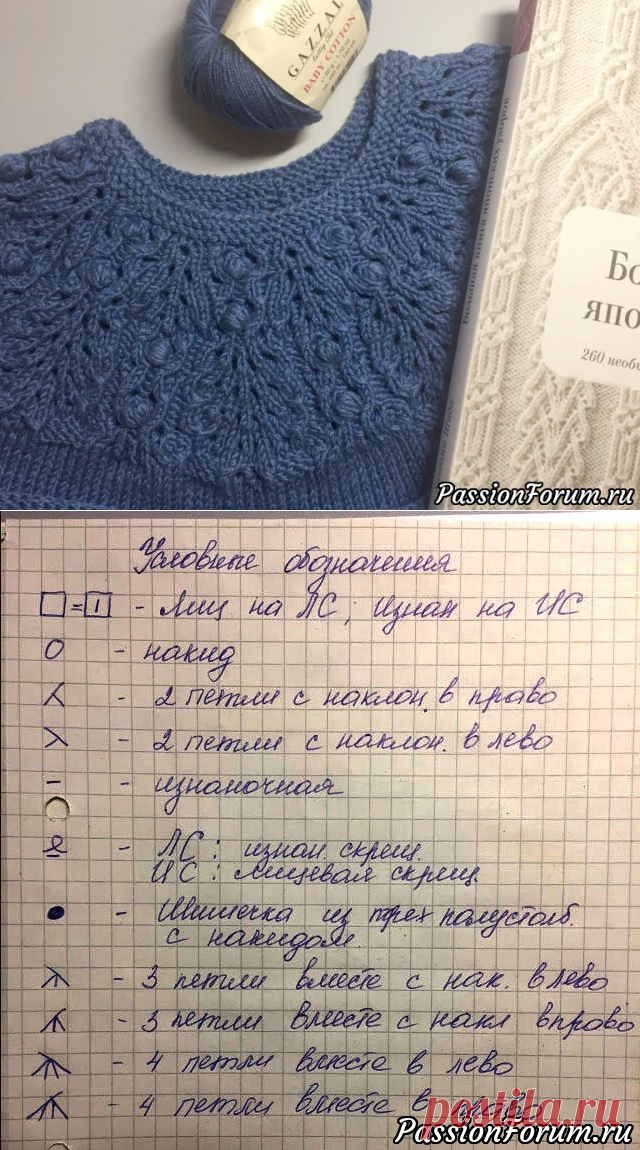 GAZZAL
BABY COTTON
Бо
япо
260 необы
PassionForum.ru
Условные обозначения
□ = I - Лиц на ЛС; Изнан на ИС
О - накид
- 2 петли с наклон. в право
- 2 петли с наклон. в лево
- - изнаночная
- ЛС: изнан. скрещ.
ИС: лицевая скрещ.
● - Шишечка из трех полустолб.
с накидом
- 3 петли вместе с нак. в лево
- 3 петли вместе с накл вправо
- 4 петли вместе в лево
- 4 петли вместе в право
postila.ru
PassionForum.ru